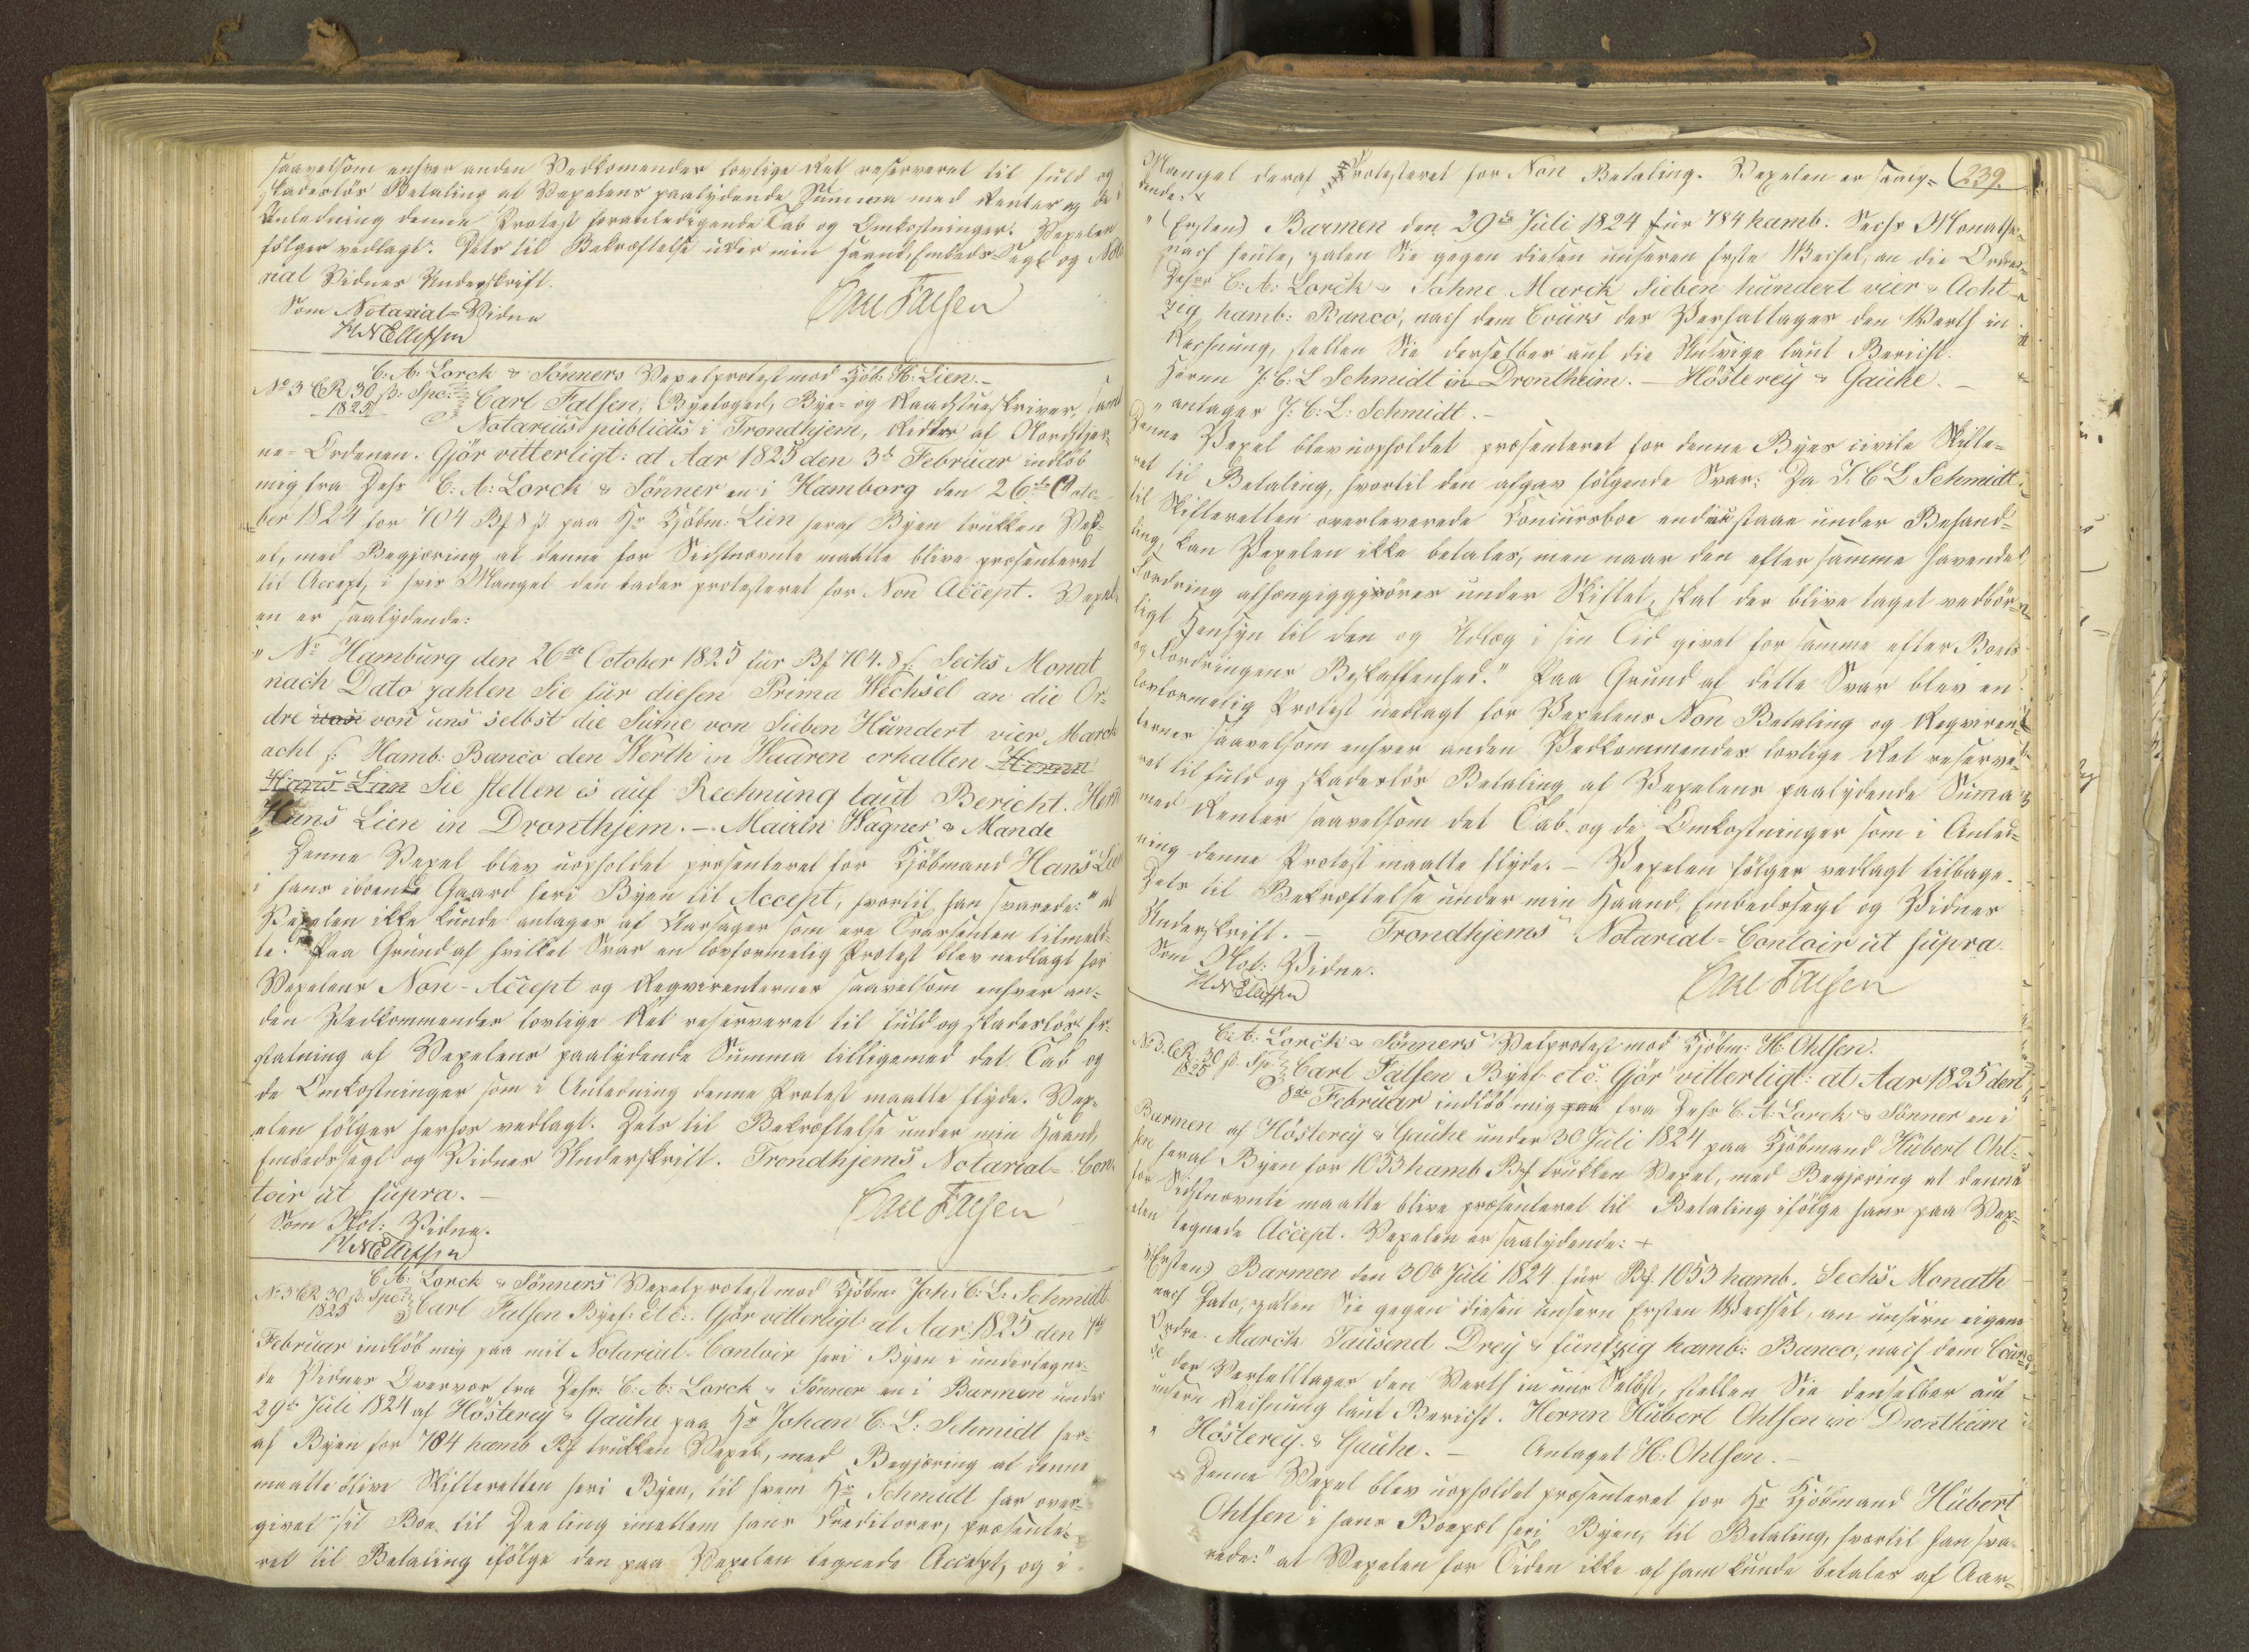 saavelsom enhver anden Vedkomendes lovlige Ret reserveret til fuld og
skadesløs Betaling af Vexelens paalydende Summa med Renter og de i
Anledning denne Protest foranledigende Tab og Omkostninger. Vexelen
følger vedlagt. Dets til Bekræftelse under min Haand, Embeds-Segl og Nota
rial Vidnes Underskrift.
Som Notarial-Vidne
Carl Falsen
H N Ellefsen
C: A: Lorck & Sønners Vexelprotest mod Kjøb: H: Lien.-
No 3 CR 30 ß. Spec: Carl Falsen, Byefoged, Bye- og Raadstueskriver, samt
1825
Notarius publicus i Trondhjem, Ridder af Nordstjer-
ne-Ordenen. Gjør vitterligt: at Aar 1825 den 3de Februar indløb
mig fra Dhrr C: A: Lorck & Sønner en i Hamborg den 26de Octo-
ber 1824 for 704 Bf 8 ß paa Hr Kjøbm: Lien heraf Byen trukken Vex-
el, med Begjæring at denne for Sidstnævnte maatte blive præsenteret
til Accept, i hver Mangel den lades protesteret for Non Accept. Vexel-
en er saalydende:
" No Hamburg den 26de October 1825 für Bf 704. 8 ß. Sechs Monat
nach Dato zahlen Sie für diesen Prima Wechsel an die Or-
dre von uns selbst die Sume von Sieben Hundert vier March
acht ß Hamb: Banco den Werth in Waaren erhalten Herrn
Hans Lien Sie stellen es auf Rechnung laut Bericht. Herrn
Hans Lien in Dronthjem. - Wagner & Mande
Denne Vexel blev uopholdet præsenteret for Kjøbmand Hans Lien
i hans iboende Gaard heri Byen til Accept, hvortil han svarede: "at
Vexelen ikke kunde antages af Aarsager som ere Trassenten tilmeld-
te." Paa Grund af hvilket Svar en lovformelig Protest blev nedlagt for
Vexelens Non-Accept og Reqvirenternes saavelsom enhver an-
den Vedkommendes lovlige Ret reserveret til fuld og skadesløs Er-
statning af Vexelens paalydende Summa tilligemed det Tab og
de Omkostninger som i Anledning denne Protest maatte flyde. Vex-
elen følger herhos vedlagt. Dets til Bekræftelse under min Haand,
Embedssegl og Vidnes Underskrift. Trondhjems Notarial-Con-
toir ut supra.-
Carl Falsen
Som Not: Vidne.
H N Ellefsen
C: A: Lorck & Sønners Vexelprotest mod Kjøbm: Joh: C: L: Schmidt
No 3 CR 30 ß. Spec: Carl Falsen Byef: etc:. Gjør vitterligt: at Aar 1825 den 7de
1825
Februar indløb mig paa mit Notarial-Contoir heri Byen i undertegne-
de Vidnes Overvær fra Dhrr: C: A: Lorck & Sønner en i Barmen under
29de Juli 1824 af Hösterey & Gauhe paa Hr Johan C: L: Schmidt her-
af Byen for 784 hamb Bf trukken Vexel, med Begjæring at denne
maatte blive Skifteretten heri Byen, til hvem Hr Schmidt har over-
givet sit Boe til Deeling imellem hans Creditorer, præsente-
ret til Betaling ifølge den paa Vexelen tegnede Accept, og i
239.
Mangel deraf Protesteret for Non Betaling. Vexelen er saaly-
dende:
" (Ersten) Barmen den 29de Juli 1824 für 784 hamb: Sechs Monathe
nach heute, zalen Sie gegen diesen unseren Erste Wechsel, an die Order
Dehrr C: A: Lorck & Söhne Marck Sieben hundert vier & Acht
zig hamb: Banco, nach dem Cours des Verfalltages den Werth in
Rechnung, stellen Sie derselber auf die Unsrige laut Bericht.
Herrn J: C: L Schmidt in Drontheim. - Hösterey & Gauhe. -
" antages J: C: L: Schmidt. -
Denne Vexel blev uopholdet præsenteret for denne Byes civile Skifte-
ret til Betaling, hvortil den afgav følgende Svar: Da J. C L Schmidts
til Skifteretten overleverede Concursboe endnu staar under Behand-
ling, kan Vexelen ikke betales, men naar den efter samme havende
Fordring afhængiggjøres under Skiftet, skal der blive taget vedbør-
ligt Hensyn til den og Udlæg i sin Tid givet for samme efter Boets
og Fordringens Beskaffenhed." Paa Grund af dette Svar blev en
lovformelig Protest nedlagt for Vexelens Non Betaling og Reqviren-
ternes saavelsom enhver anden Vedkommendes lovlige Ret reserve-
ret til fuld og skadesløs Betaling af Vexelens paalydende Summa
med Renter saavelsom det Tab og de Omkostninger som i Anled-
ning denne Protest maatte flyde. - Vexelen følger vedlagt tilbage.
Dets til Bekræftelse under min Haand, Embedssegl og Vidnes
Underskrift. - Trondhjems Notarial-Contoir ut supra.
Som Not: Vidne.
Carl Falsen
H N Ellefsen
C: A: Lorck & Sønners Vexelprotest mod Kjøbm: H: Ohlsen.
No 3. CR 30 ß. Sp: Carl Falsen Byef. etc: Gjør vitterligt: at Aar 1825 den
1825
8de Februar indløb mig fra Dhrr C: A: Lorck & Sønner en i
Barmen af Hösterey & Gauhe under 30 Juli 1824 paa Kjøbmand Hübert Ohl-
sen heraf Byen for 1053 hamb Bf trukken Vexel, med Begjæring at denne
for Sidstnævnte maatte blive præsenteret til Betaling ifølge hans paa Vex-
elen tegnede Accept. Vexelen er saalydende:
"(Ersten) Barmen den 30de Juli 1824 für Bf. 1053 hamb. Sechs Monath
nach Dato, zalen Sie gegen diesen unsern Ersten Wechsel, an unsern eigene
Ordre. Marck Tausend Drey & fünfzig hamb: Banco, nach dem Cour-
se der Verfalltages den Werth in uns Selbst, stellen Sie denselber auf
unsern Rechnung laut Bericht. Herrn Hübert Ohlsen in Drontheim
" Hösterey & Gauhe. - Antaget H: Ohlsen. -
Denne Vexel blev uopholdet præsenteret for Hr Kjøbmand Hübert
Ohlsen i hans Boepæl heri Byen, til Betaling, hvortil han sva-
rede: "at Vexelen for Tiden ikke af ham kunde betales af Aar-